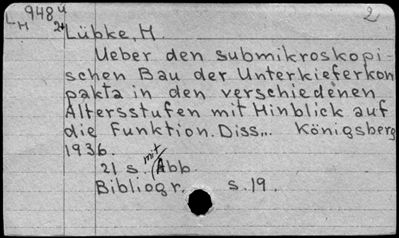 L 948 ü 2
H 2
Lübke, H.
Ueber den submikroskopi-
schen Bau der Unterkieferkom
pakta in den verschiedenen
Altersstufen mit Hinblick auf
die Funktion. Diss,.. Königsberg
1936.
21 s. mit Abb.
Bibliogr. s.19.